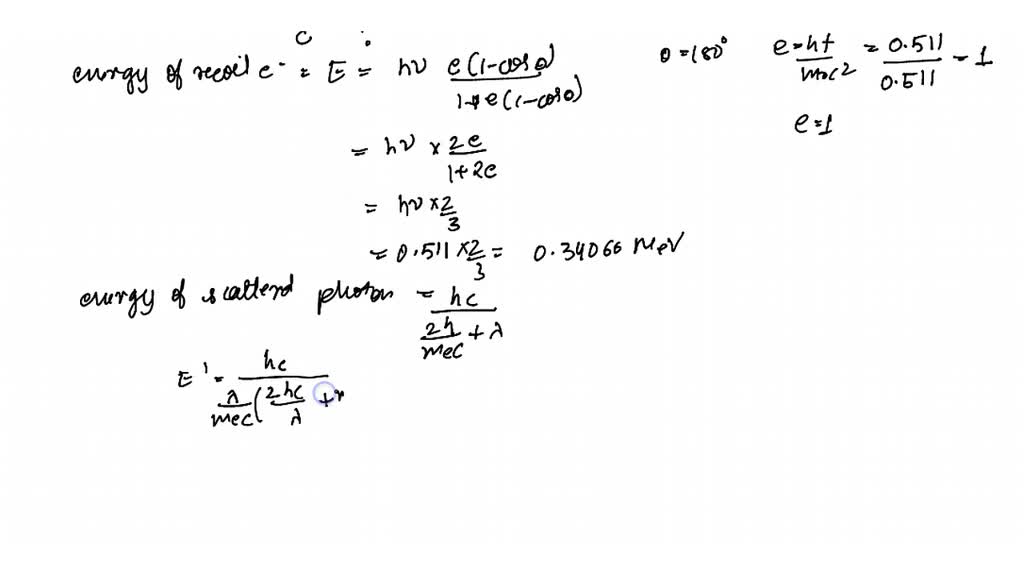 C :
energy of recoil e⁻ = E = hν e(1-cosθ) / 1+e(1-cosθ)
θ=180° e=hf/m₀c² = 0.511/0.511 = 1
e=1
= hν × 2e/1+2e
= hν × 2/3
= 0.511 × 2/3 = 0.34066 MeV
energy of scatterd photon = hc / 2h/mec + λ
E' = hc / λ/mec (2hc/λ +